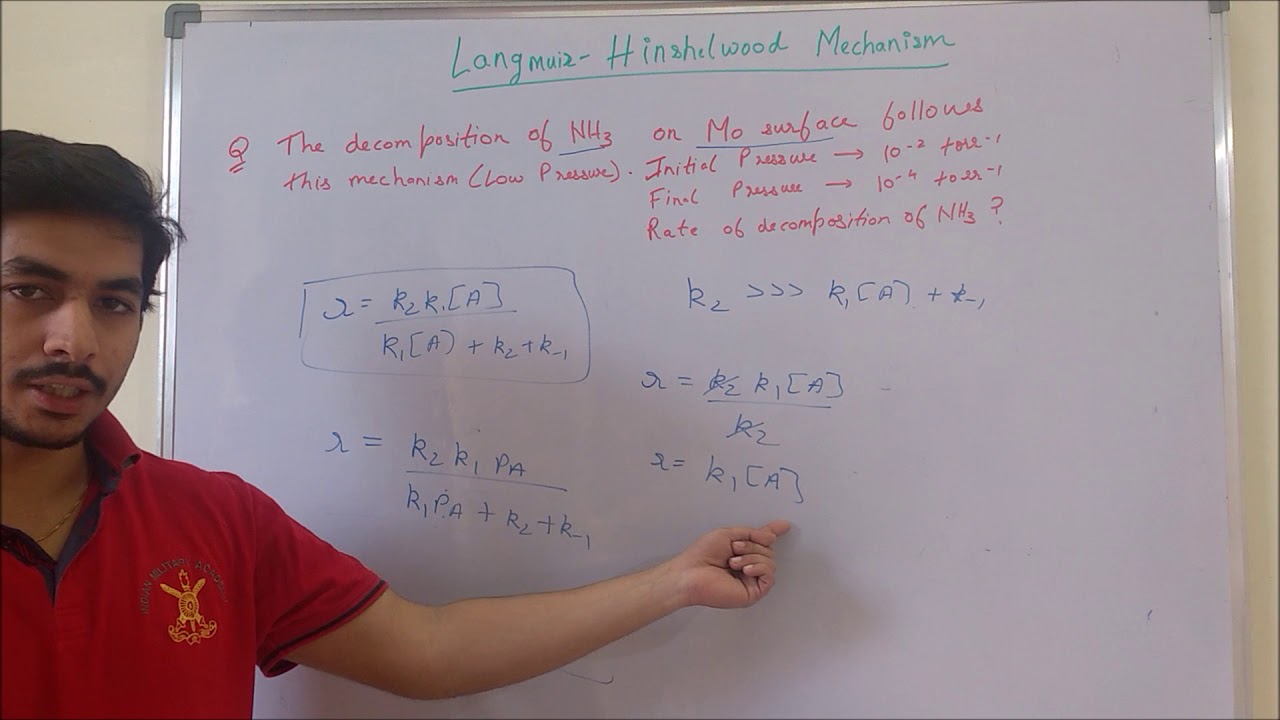 Langmuir - Hinshelwood Mechanism
Q The decomposition of NH3 on Mo surface follows
this mechanism (Low Pressure). Initial Pressure → 10^-2 torr^-1
Final Pressure → 10^-4 torr^-1
Rate of decomposition of NH3 ?
r = k2 k1 [A] / k1[A] + k2 + k-1
k2 >>> k1[A] + k-1
r = k2 k1 [A] / k2
r = k2 k1 PA / k1 PA + k2 + k-1
r = k1 [A]
INDIAN MILITARY ACADEMY